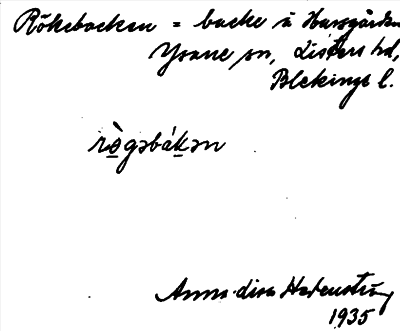 Rökebacken = backe å Hersgården
Ysane sn, Listers hd,
Blekinge l.
rö̀gəbákən
Anna-Lisa
1935